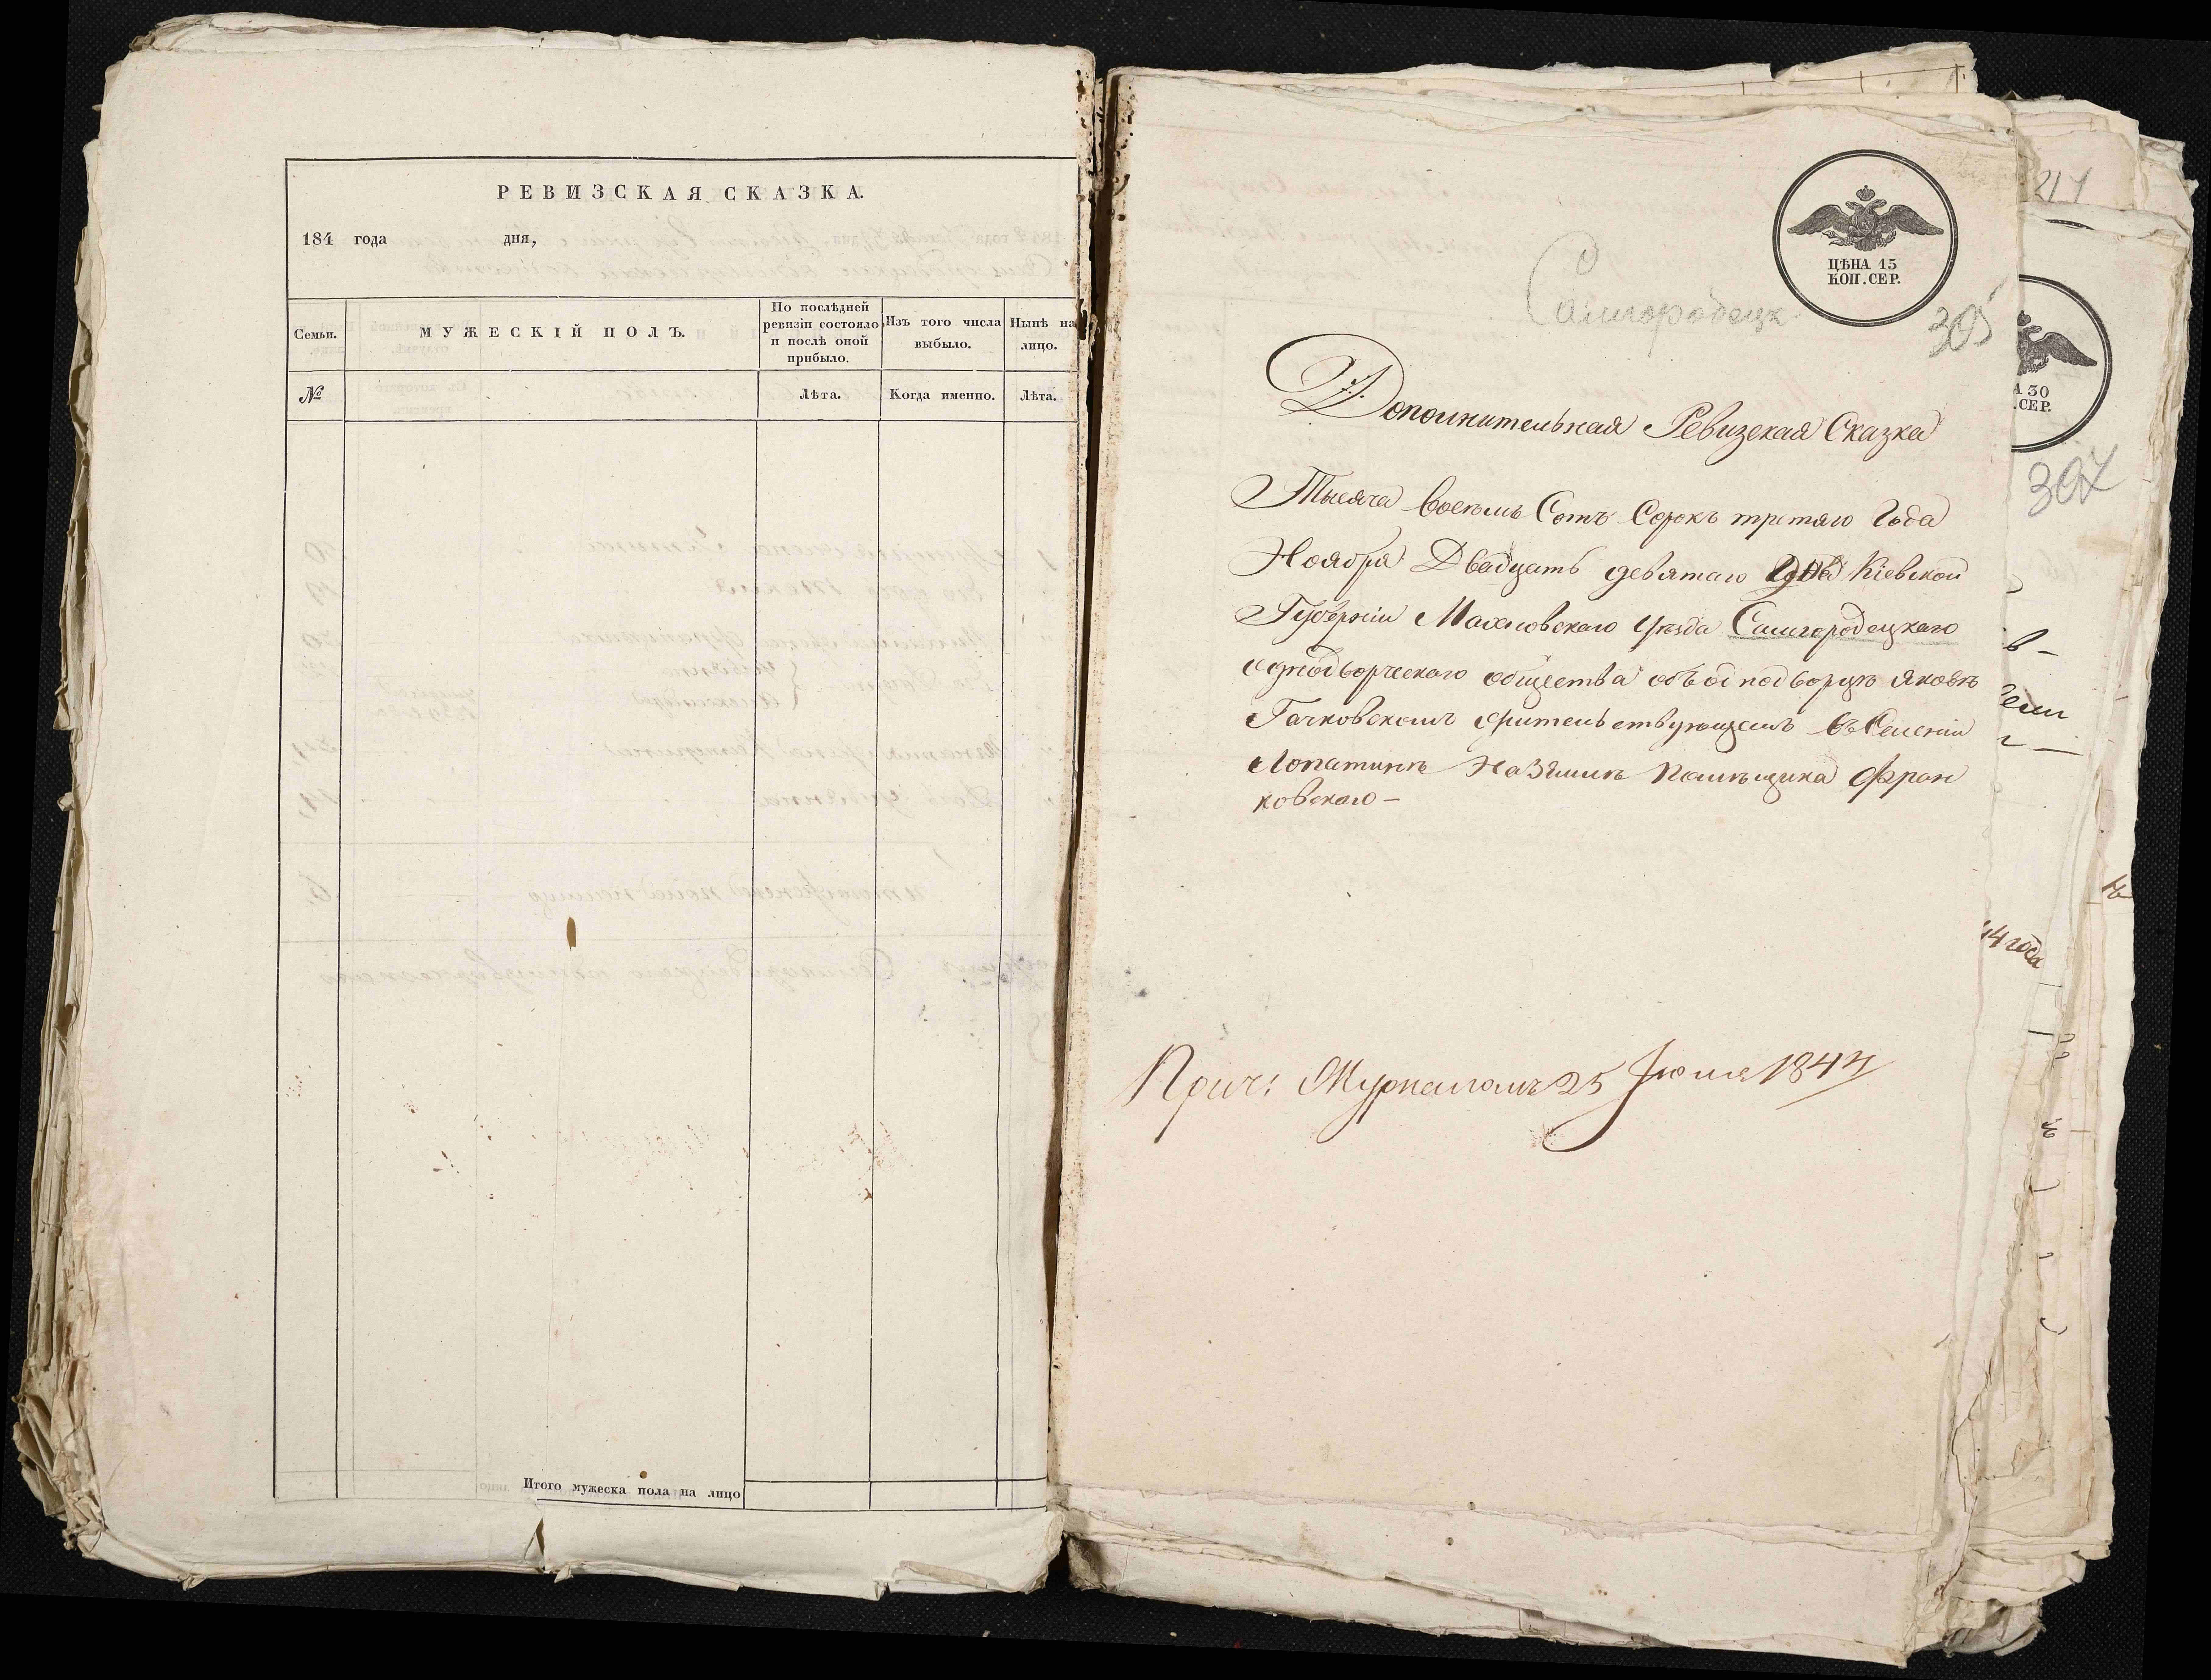 РЕВИЗСКАЯ СКАЗКА.
184 года дня,
Семьи.
МУЖЕСКІЙ ПОЛЪ.
По послѣдней ревизіи состояло и послѣ оной прибыло.
Изъ того числа выбыло.
Нынѣ на лицо.
№
Лѣта.
Когда именно.
Лѣта.
Итого мужеска пола на лицо
ЦѢНА 15
КОП. СЕР.
Самгородецк
305
Дополнительная Ревизская Сказка
Тысяча восемь Сотъ Сорокъ третяго Года
Ноября Двадцать девятаго дня Кіевской
Губерніи Махновскаго уѣзда Самгородецкаго
однодворческаго общества объ однодворцѣ Яковѣ
Гачковскомъ жительствующемъ въ Селеніи
Лопатинѣ На Землѣ Помѣщика Фран
ковскаго —
Прич: Журналомъ 25 Іюля 1844
217
А 30
.СЕР.
307
в —
44 года